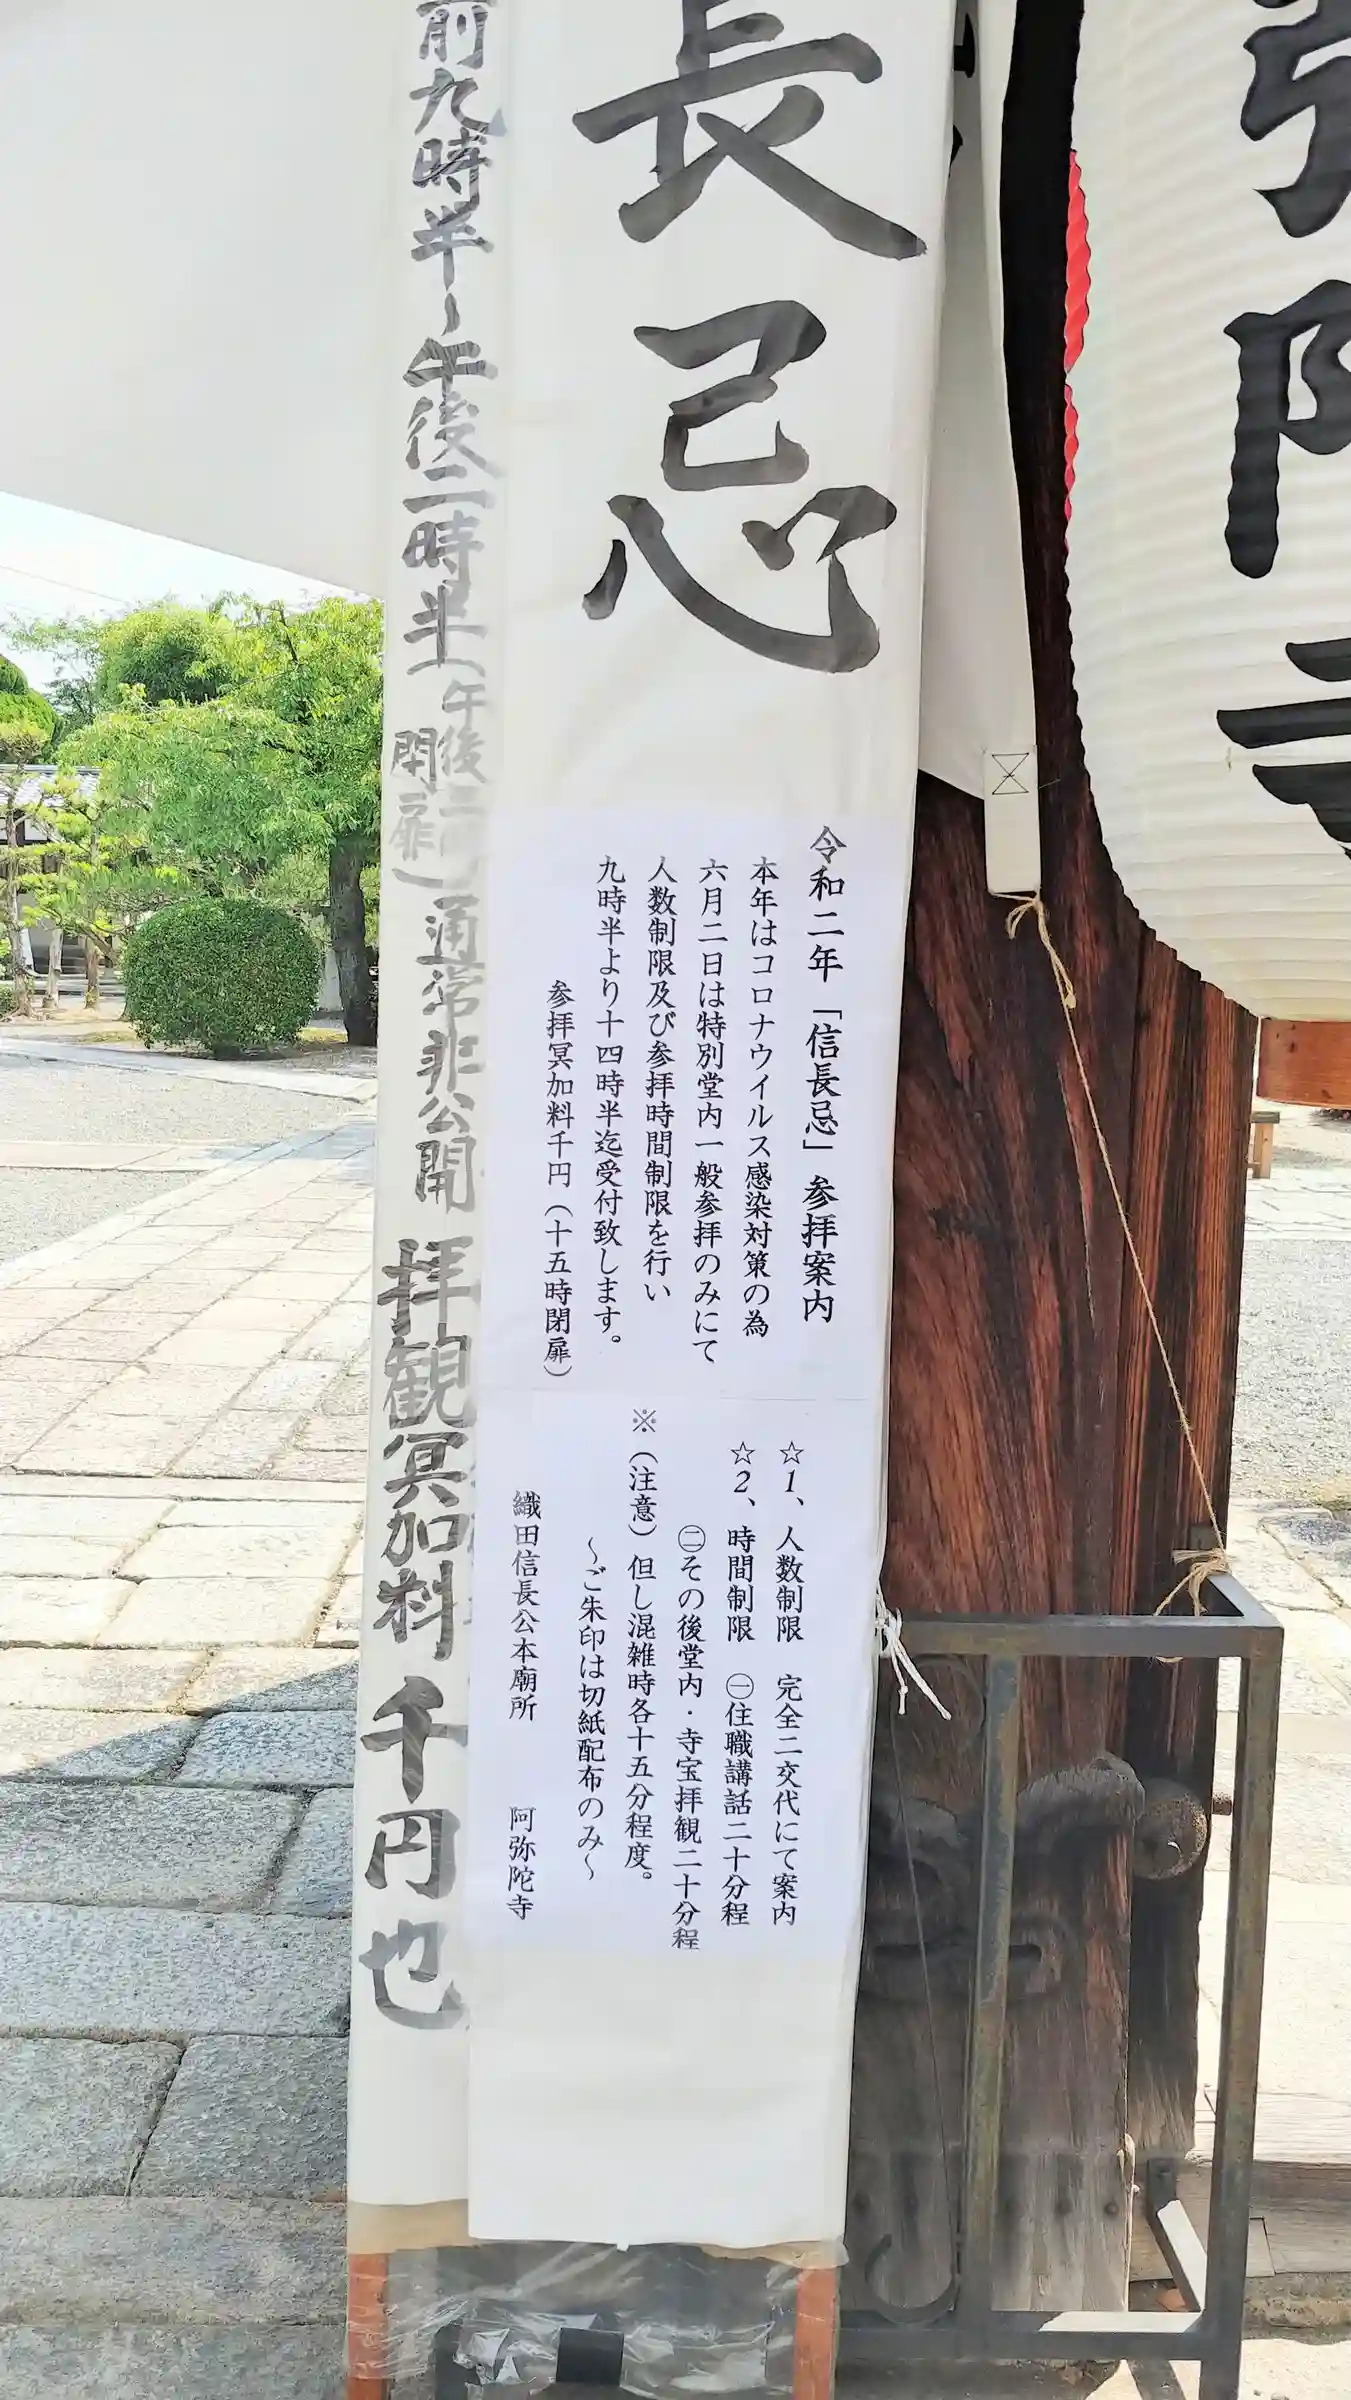 弥陀寺
長忌
令和二年「信長忌」参拝案内
本年はコロナウイルス感染対策の為
六月二日は特別堂内一般参拝のみにて
人数制限及び参拝時間制限を行い
九時半より十四時半迄受付致します。
参拝冥加料千円（十五時閉扉）
☆1、人数制限　完全二交代にて案内
☆2、時間制限　㊀住職講話二十分程
㊁その後堂内・寺宝拝観二十分程
※（注意）但し混雑時各十五分程度。
～ご朱印は切紙配布のみ～
織田信長公本廟所　阿弥陀寺
前九時半～午後二時半（午後三時閉扉）通常非公開　拝観冥加料　千円也